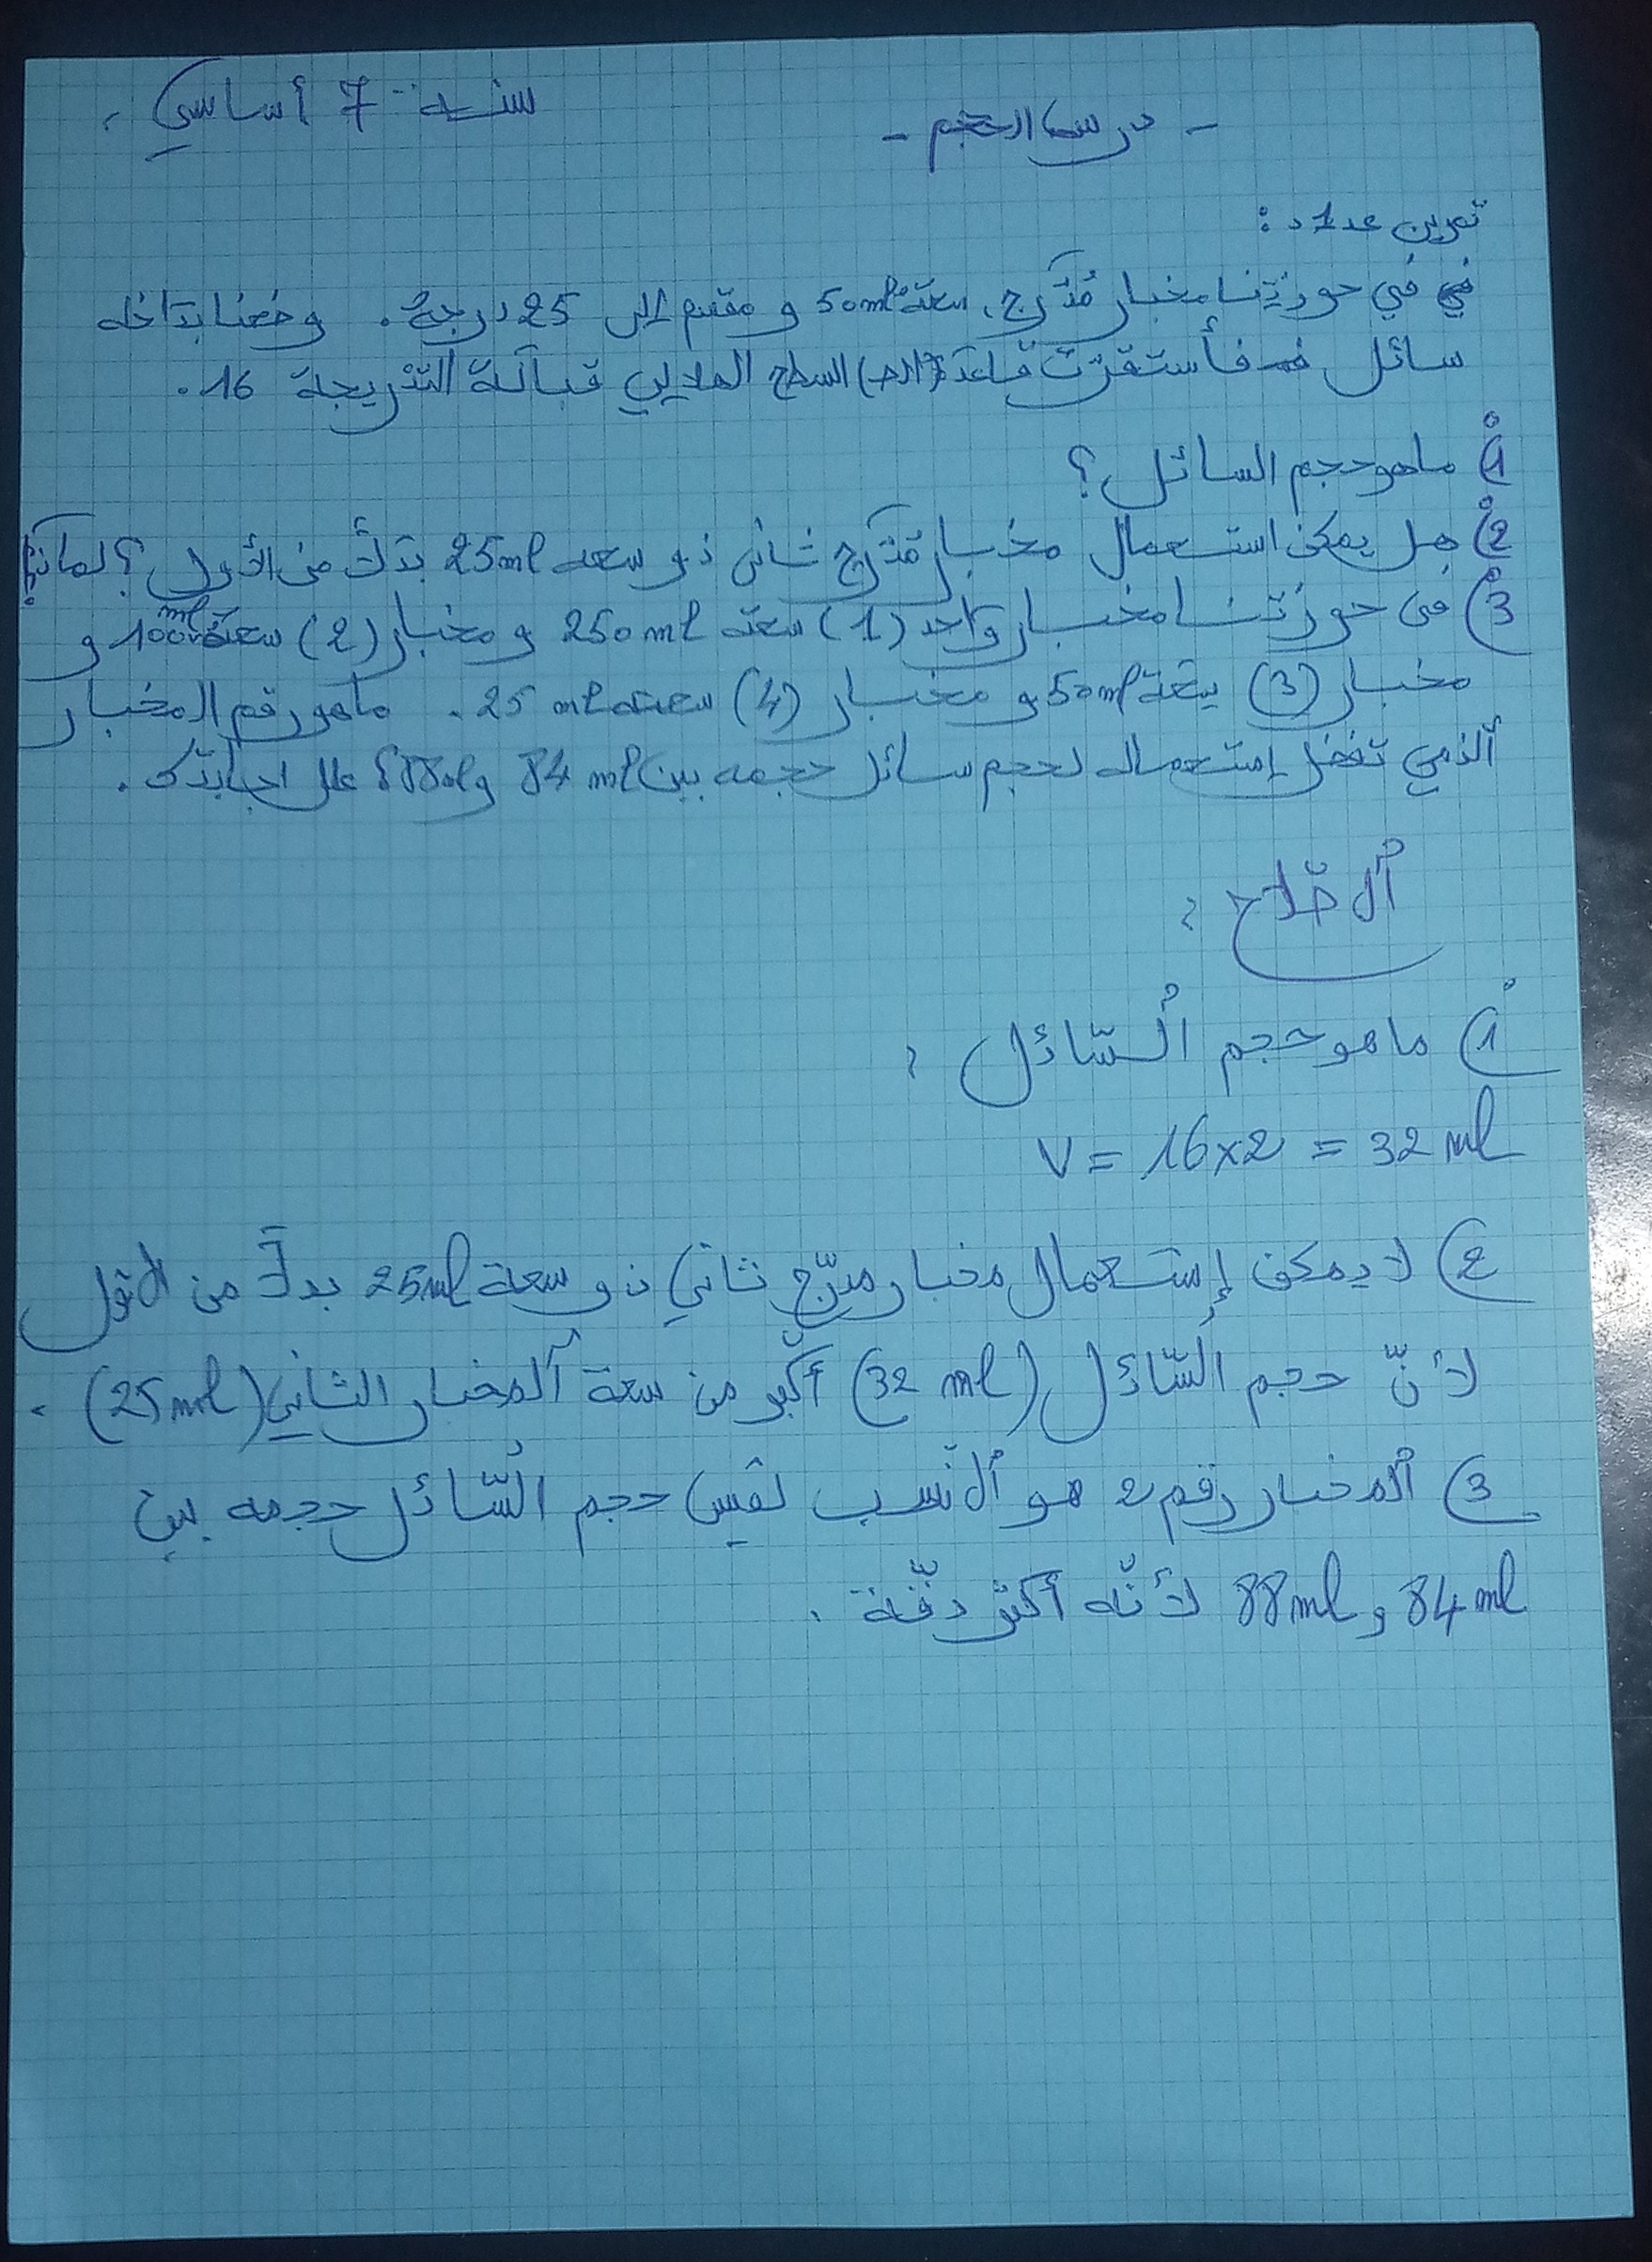 سنة 7 أساسي
- درس الحجم -
تمرين عدد 1 :
في حوزتنا مخبار مُدَرّج، سعته 50ml و مقسم إلى 25 درجة. وضعنا بداخله
سائل فأستقرّت قاعدة السطح الهلالي قبالة التدريجة 16.
1) ماهو حجم السائل ؟
2) هل يمكن استعمال مخبار مُدَرّج ثاني ذو سعه 25ml بدلاً من الأول ؟ لماذا؟
3) في حوزتنا مخبار واحد (1) سعته 250 ml و مخبار (2) سعته 100 ml و
مخبار (3) سعته 50ml و مخبار (4) سعته 25 ml. ماهو رقم المخبار
ألذي تفضل إستعماله لحجم سائل حجمه بين 84 ml و 88ml؟ علل اجابتك.
1) ماهو حجم ألسّائل :
V = 16x2 = 32 ml
2) لا يمكن إستعمال مخبار مدرّج ثاني ذو سعة 25ml بدلاً من الأول
لأنّ حجم السّائل (32 ml) أكبر من سعة ألمخبار الثاني (25ml).
3) ألمخبار رقم 2 هو ألأنسب لقيس حجم السّائل حجمه بين
84 ml و 88ml لأنّه أكثر دقّة.